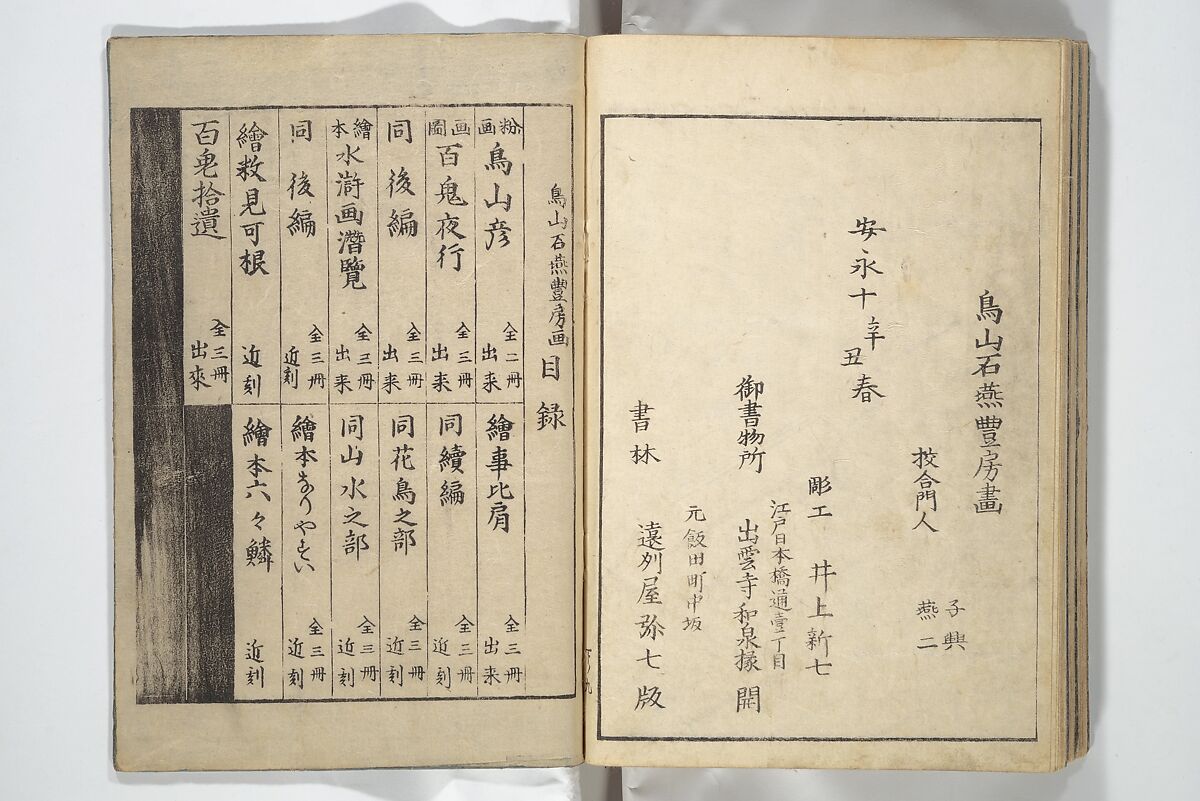 鳥山石燕豐房畫
校合門人
子興
燕二
安永十辛丑春
彫工 井上新七
江戸日本橋通壹丁目
御書物所 出雲寺和泉掾 開
元飯田町中坂
書林 遠州屋弥七 版
鳥山石燕豐房画 目録
粉画 鳥山彦 全二冊 出来
画圖 百鬼夜行 全三冊 出来
同 後編 全三冊 出来
繪本 水滸画潛覽 全三冊 出来
同 後編 全三冊 近刻
繪教見可根 近刻
百鬼拾遺 全三冊 出來
繪事比肩 全三冊 出来
同續編 全三冊 近刻
同花鳥之部 全三冊 近刻
同山水之部 全三冊 近刻
繪本 全三冊 近刻
繪本六々鱗 近刻